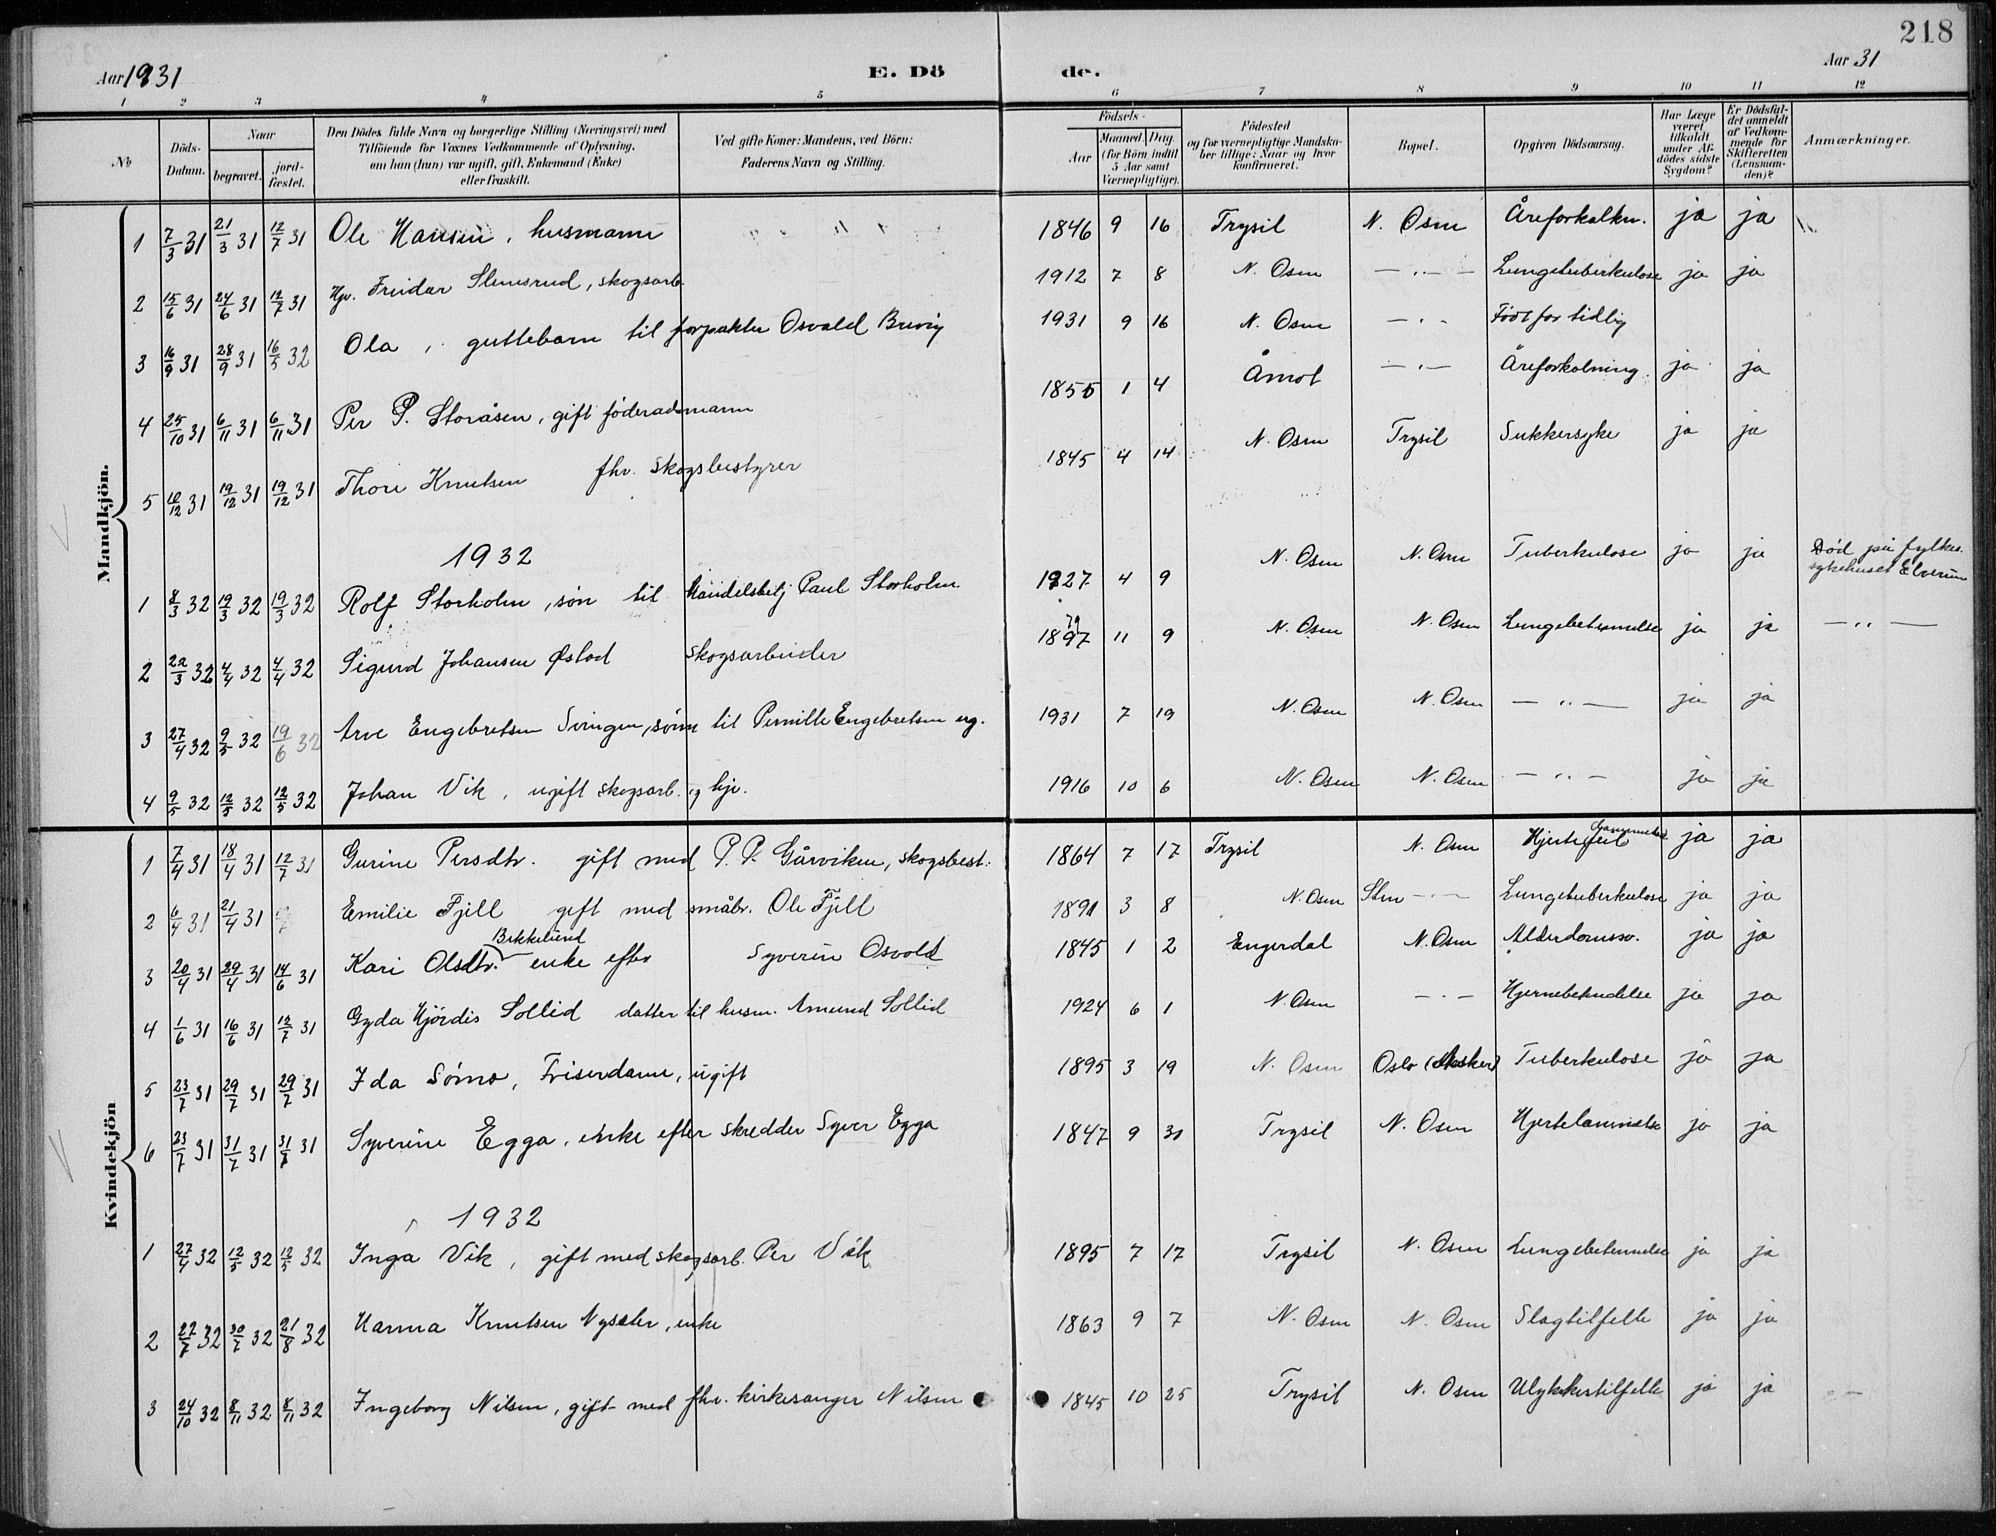 218
Aar 1931 E. Dö de. Aar 31
1 2 3 4 5 6 7 8 9 10 11 12
No Döds-Datum. Naar begravet. jord-fæstet. Den Dödes fulde Navn og borgerlige Stilling (Næringsvei) med Tilföiende for Voxnes Vedkommende af Oplysning, om han (hun) var ugift, gift, Enkemand (Enke) eller fraskilt. Ved gifte Koner: Mandens, ved Börn: Faderens Navn og Stilling. Födsels- Aar Maaned Dag (for Börn indtil 5 Aar samt Værnepligtige). Födested og for værnepligtige Mandska-ber tillige: Naar og hvor konfirmeret. Bopæl. Opgiven Dödsaarsag. Har Læge været tilkaldt under Af-dödes sidste Sygdom? Er Dödsfal-det anmeldt af Vedkom-mende for Skifteretten (Lensman-den)? Anmærkninger.
Mandkjön.
1 7/3 31 21/3 31 12/7 31 Ole Hansen, husmann 1846 9 16 Trysil N. Osen Åreforkalkn. ja ja
2 15/6 31 24/6 31 12/7 31 Hjv. Freidar Slemsrud, skogsarb. 1912 7 8 N. Osen — " — Lungetuberkulose ja ja
3 16/9 31 28/9 31 16/5 32 Ola, guttebarn til forpakter Osvald Brevig 1931 9 16 N. Osen — " — Født for tidlig
4 25/10 31 6/11 31 6/11 31 Per P. Storåsen, gift føderadsmann 1855 1 4 Åmot — " — Åreforkalning. ja ja
5 10/12 31 19/12 31 19/12 31 Thore Knutsen fhv. skogsbestyrer 1845 4 14 N. Osen Trysil Sukkersyke ja ja
1932
1 8/3 32 19/3 32 19/3 32 Rolf Storholm, søn til Handelsbetj Paul Storholm 1927 4 9 N. Osen N. Osen Tuberkulose ja ja Død på fylkes-sykehuset Elverum
2 22/3 32 4/4 32 4/4 32 Sigurd Johansen Øslod skogsarbeider 1897 11 9 N. Osen N. Osen Lungebetennelse ja ja — " —
3 27/4 32 9/5 32 19/6 32 Arve Engebretsen Svingen, sønn til Pernille Engebretsen ug. 1931 7 19 N. Osen N. Osen — " — ja ja
4 9/5 32 12/5 32 12/5 32 Johan Vik, ugift skogsarb. og hjv. 1916 10 6 N. Osen N. Osen — " — ja ja
Kvindekjön
1 7/4 31 18/4 31 12/7 31 Gurine Persdtr. gift med P. P. Gårviken, skogsbest. 1864 7 17 Trysil N. Osen Hjertefeil ja ja
2 6/4 31 21/4 31 Emilie Fjell gift med småbr. Ole Fjell 1891 3 8 N. Osen Sten — " — Lungetuberkulose ja ja
3 20/4 31 29/4 31 14/6 31 Kari Olsdtr. Bekkelund enke efter Syverin Osvold 1845 1 2 Engerdal N. Osen Alderdomssv. ja ja
4 1/6 31 16/6 31 12/7 31 Gyda Hjördis Sollid datter til husm. Amund Sollid 1924 6 1 N. Osen — " — Hjernebetendelse ja ja
5 23/7 31 29/7 31 29/7 31 Ida Sömo, Friserdame, ugift 1895 3 19 N. Osen Oslo (Asker) Tuberkulose ja ja
6 23/7 31 31/7 31 31/7 31 Syverine Egga, enke efter skredder Syver Egga 1847 9 30 Trysil N. Osen Hjertelammelse ja ja
1932
1 27/4 32 12/5 32 12/5 32 Inga Vik, gift med skogsarb. Per Vik 1895 7 17 Trysil N. Osen Lungebetennelse ja ja
2 22/7 32 30/7 32 21/8 32 Hanna Knutsen Nyseter, enke 1863 9 7 N. Osen N. Osen Slagtilfelle ja ja
3 24/10 32 8/11 32 8/11 32 Ingeborg Nilsen, gift med fhv. kirkesanger Nilsen 1845 10 25 Trysil N. Osen Ulykkestilfelle ja ja